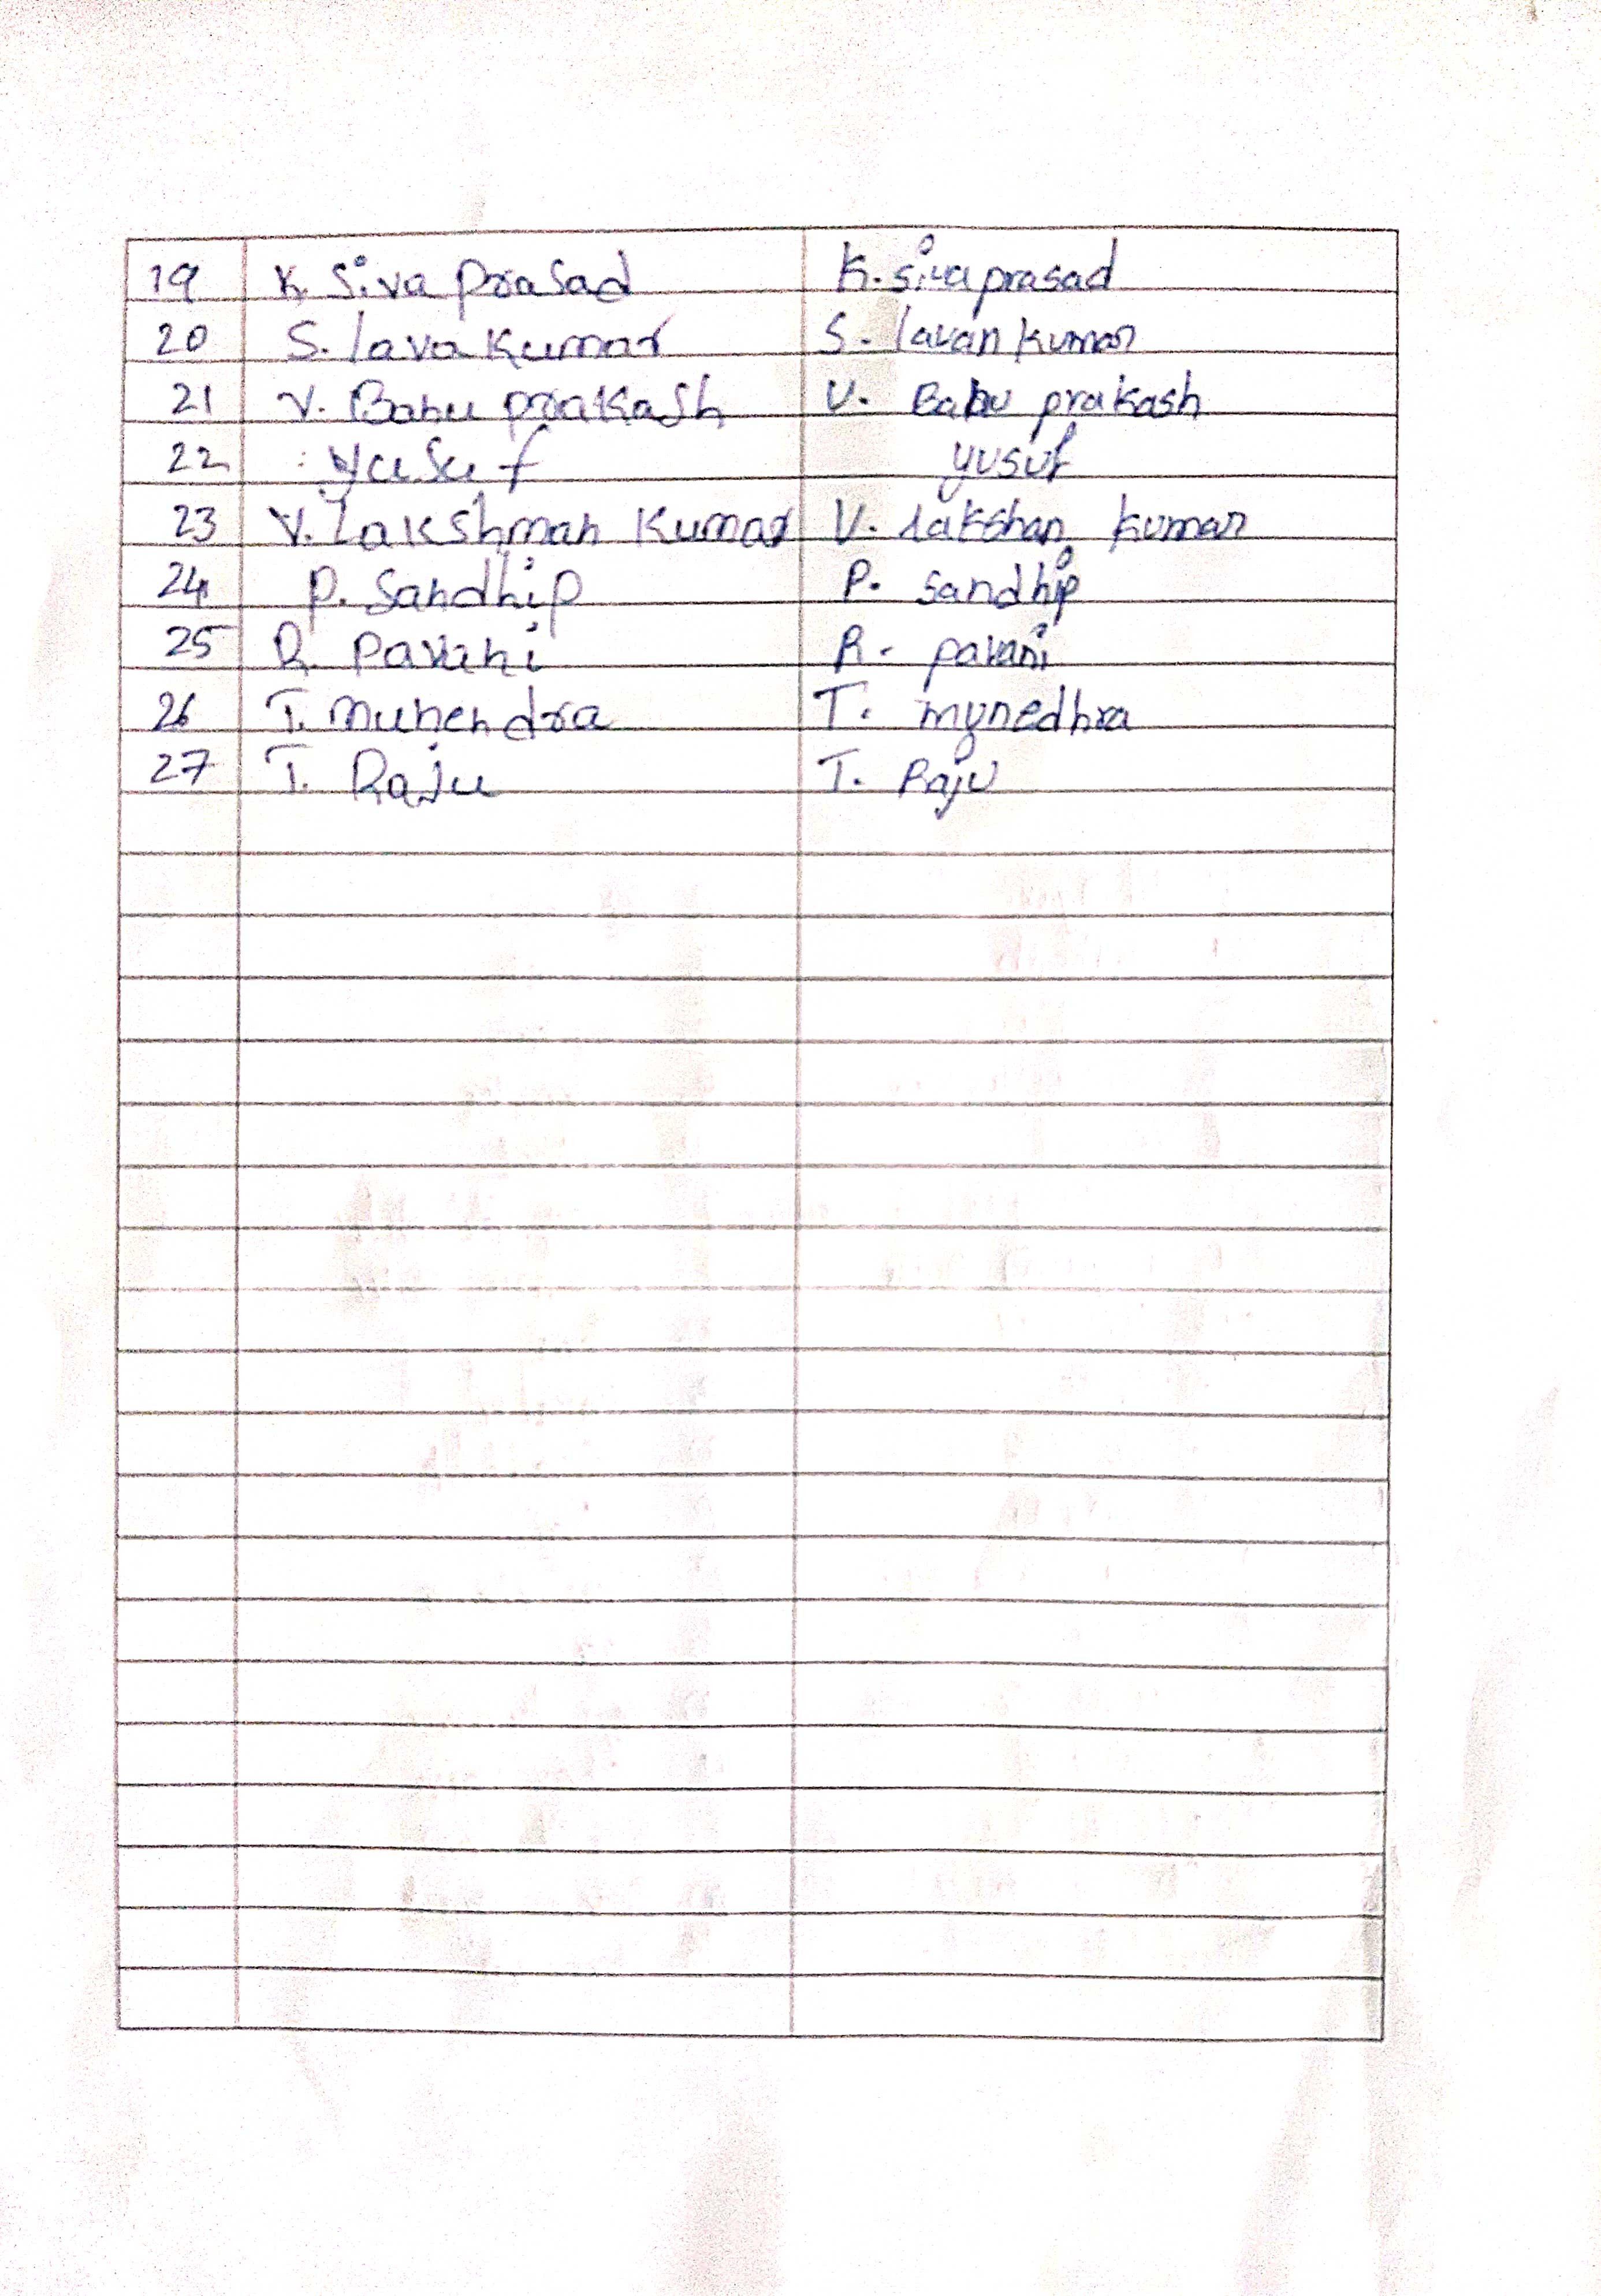 19 K. Siva prasad K. siva prasad
20 S. lava Kumar S. lavan kumar
21 V. Babu prakash V. Babu prakash
22 yusuf yusuf
23 V. Lakshman Kumar V. lakshan kumar
24 P. Sandhip P. sandhip
25 R. Pavani R. pavani
26 T. munendra T. mynedhra
27 T. Raju T. Raju